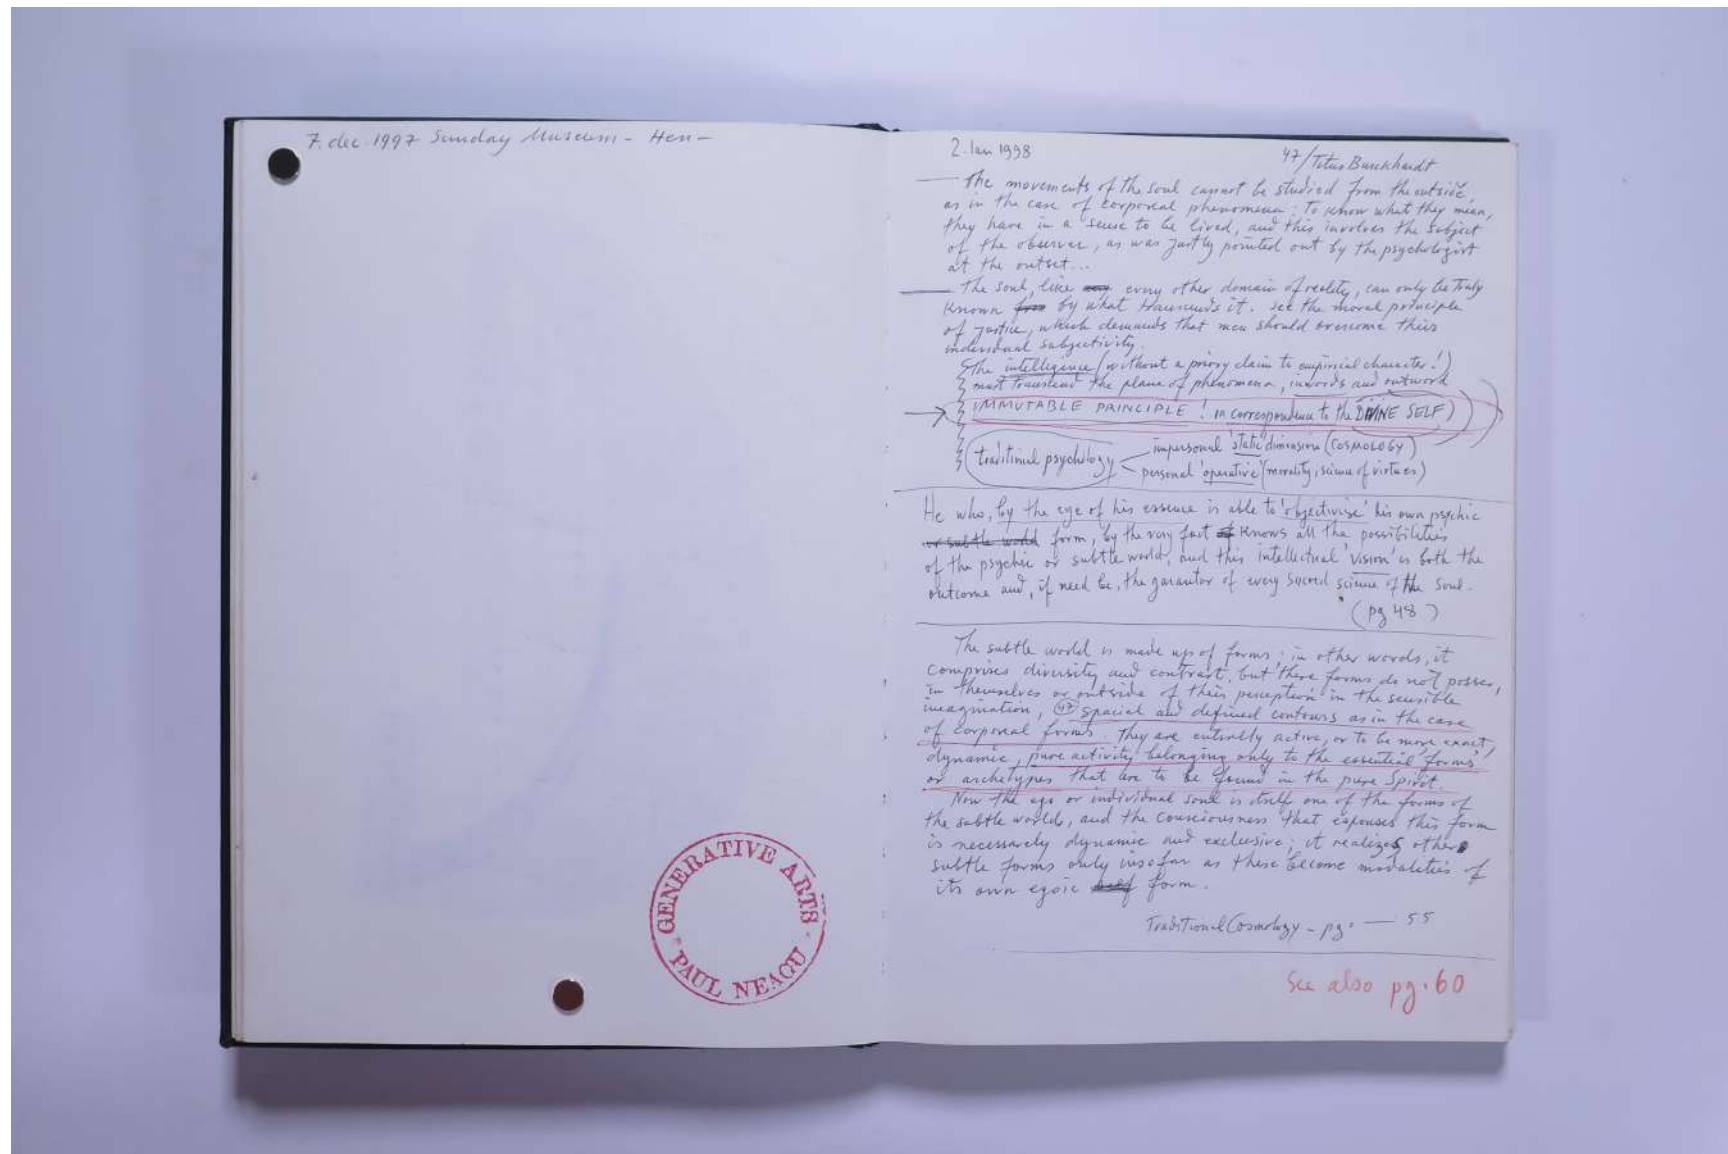 7. dec. 1997 Sunday Museum - Hen -
GENERATIVE ARTS
PAUL NEAGU
2. Jan 1998
47/Titus Burckhardt
The movements of the soul cannot be studied from the outside,
as in the case of corporeal phenomena; to know what they mean,
they have in a sense to be lived, and this involves the subject
of the observer, as was justly pointed out by the psychologist
at the outset...
The soul, like every other domain of reality, can only be truly
known by what transcends it. See the moral principle
of justice, which demands that men should overcome their
individual subjectivity.
The intelligence (without a priory claim to empirical character!)
must transcend the plane of phenomena, inwords and outword
IMMUTABLE PRINCIPLE! in correspondence to the DIVINE SELF)
traditional psychology
impersonal 'static' dimension (COSMOLOGY)
personal 'operative' (morality, science of virtues)
He who, by the eye of his essence is able to 'objectivise' his own psychic
or subtle world form, by the very fact knows all the possibilities
of the psychic or subtle world, and this intellectual 'vision' is both the
outcome and, if need be, the garantor of every sacred science of the soul.
(pg 48)
The subtle world is made up of forms; in other words, it
comprises diversity and contrast, but these forms do not posses,
in themselves or outside of their perception in the sensible
imagination, (47) spacial and defined contours as in the case
of corporeal forms. They are entirelly active, or to be more exact,
dynamic, pure activity belonging only to the essential 'forms'
or archetypes that are to be found in the pure Spirit.
Now the ego or individual soul is itself one of the forms of
the subtle world, and the consciousness that espouses this form
is necessarely dynamic and exclusive; it realizes other
subtle forms only insofar as these become modalities of
its own egoic form.
Traditional Cosmology - pg. — 55
See also pg. 60